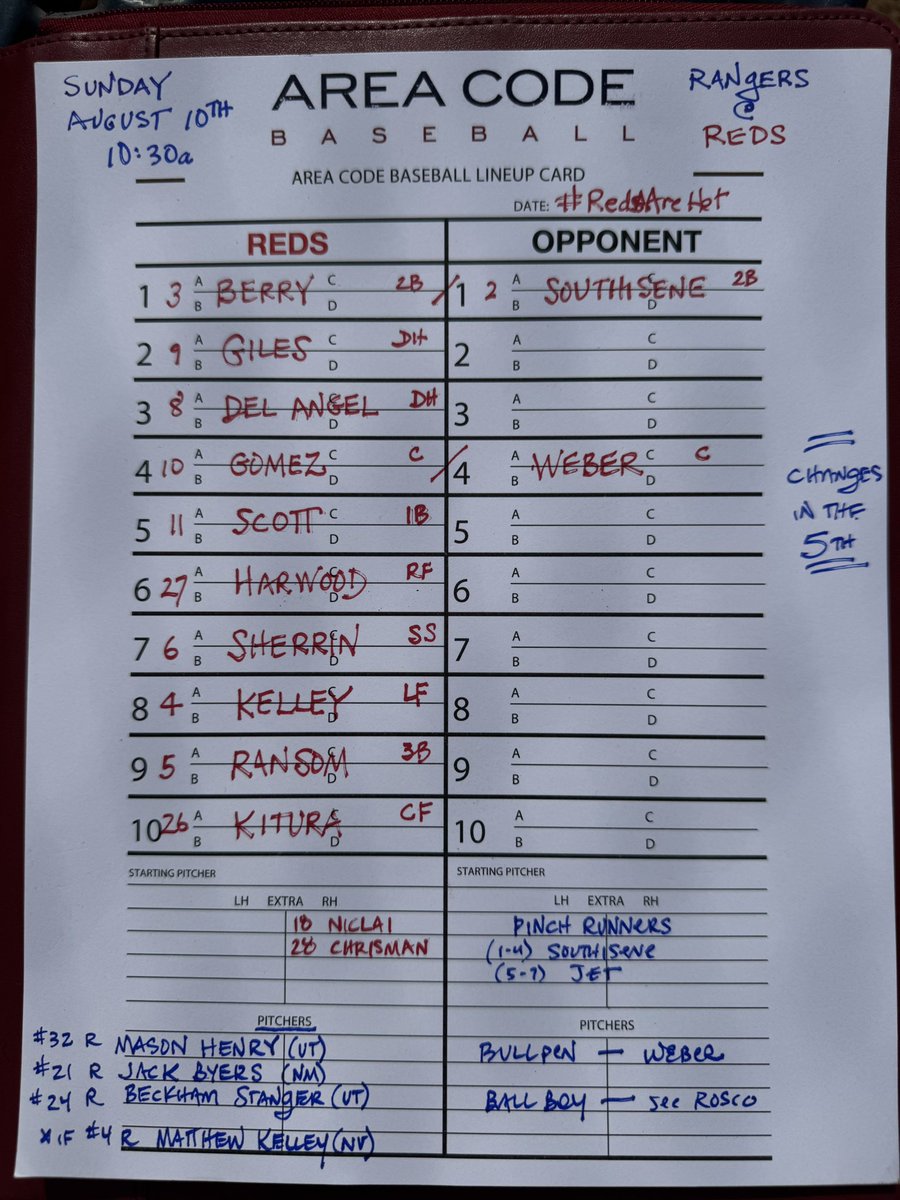 SUNDAY
AUGUST 10TH
10:30a
AREA CODE
BASEBALL
RANgERS
@
REDS
AREA CODE BASEBALL LINEUP CARD
DATE: #RedsAreHot
REDS
OPPONENT
1 3 A B BERRY C D 2B
1 2 A B SOUTHISENE C D 2B
2 9 A B GILES C D DH
2 A B C D
3 8 A B DEL ANGEL C D DH
3 A B C D
4 10 A B GOMEZ C D C
4 A B WEBER C D C
5 11 A B SCOTT C D 1B
5 A B C D
6 27 A B HARWOOD C D RF
6 A B C D
7 6 A B SHERRIN C D SS
7 A B C D
8 4 A B KELLEY C D LF
8 A B C D
9 5 A B RANSOM C D 3B
9 A B C D
10 26 A B KITURA C D CF
10 A B C D
CHANgES
IN THE
5TH
STARTING PITCHER
STARTING PITCHER
LH EXTRA RH
LH EXTRA RH
18 NICLAI
28 CHRISMAN
PINCH RUNNERS
(1-4) SOUTHISENE
(5-7) JET
PITCHERS
PITCHERS
#32 R MASON HENRY (UT)
#21 R JACK BYERS (NM)
#24 R BECKHAM STANgER (UT)
* IF #4 R MATTHEW KELLEY (NV)
BULLPEN — WEBER
BALL BOY — See ROSCO